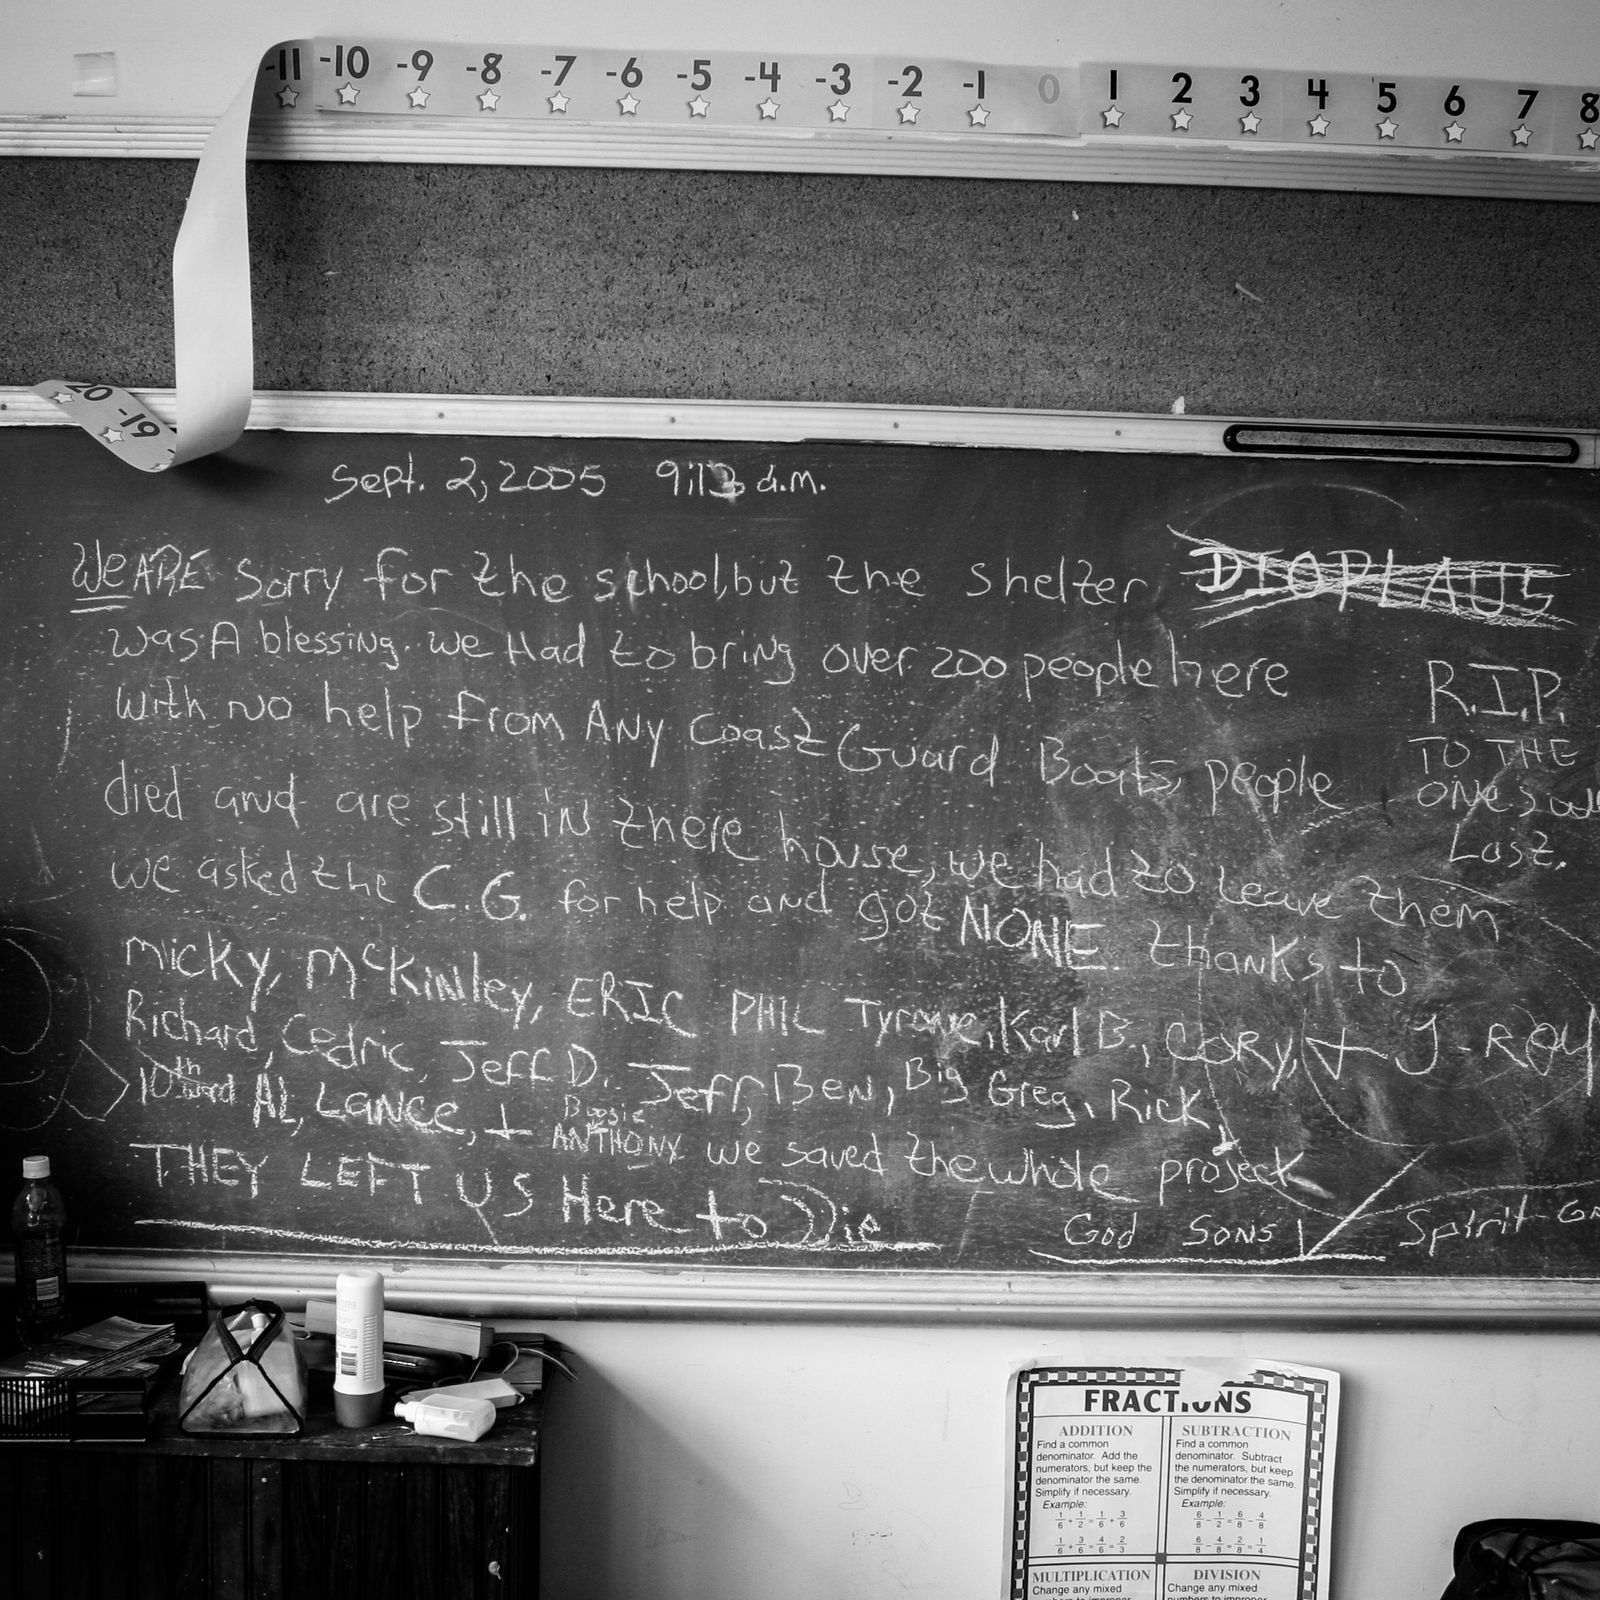 -11 -10 -9 -8 -7 -6 -5 -4 -3 -2 -1 0 1 2 3 4 5 6 7 8
20 -19
Sept. 2, 2005 9:13 a.m.
We ARE Sorry for the school, but the shelter
DIOPLAUS
was A blessing. we Had to bring over 200 people here
with NO help from ANY Coast Guard Boats, people
died and are still in there house, we had to Leave them
we asked the C.G. for help and got NONE. thanks to
Micky, McKinley, ERIC PHIL Tyrone, Karl B., CORY, + J-ROY
Richard, Cedric, Jeff D. Jeff, Ben, Big Greg, Rick,
10th ward AL, LANCE, + Boosie ANTHONY we saved the whole project
THEY LEFT US Here to Die
God Sons Spirit
R.I.P.
TO THE
ONES
Lost.
FRACTIONS
ADDITION
Find a common
denominator. Add the
numerators, but keep the
denominator the same.
Simplify if necessary.
Example:
1/6 + 1/2 = 1/6 + 3/6
1/6 + 3/6 = 4/6 = 2/3
SUBTRACTION
Find a common
denominator. Subtract
the numerators, but keep
the denominator the same.
Simplify if necessary.
Example:
6/8 - 1/2 = 6/8 - 4/8
6/8 - 4/8 = 2/8 = 1/4
MULTIPLICATION
Change any mixed
numbers to improper
DIVISION
Change any mixed
numbers to improper